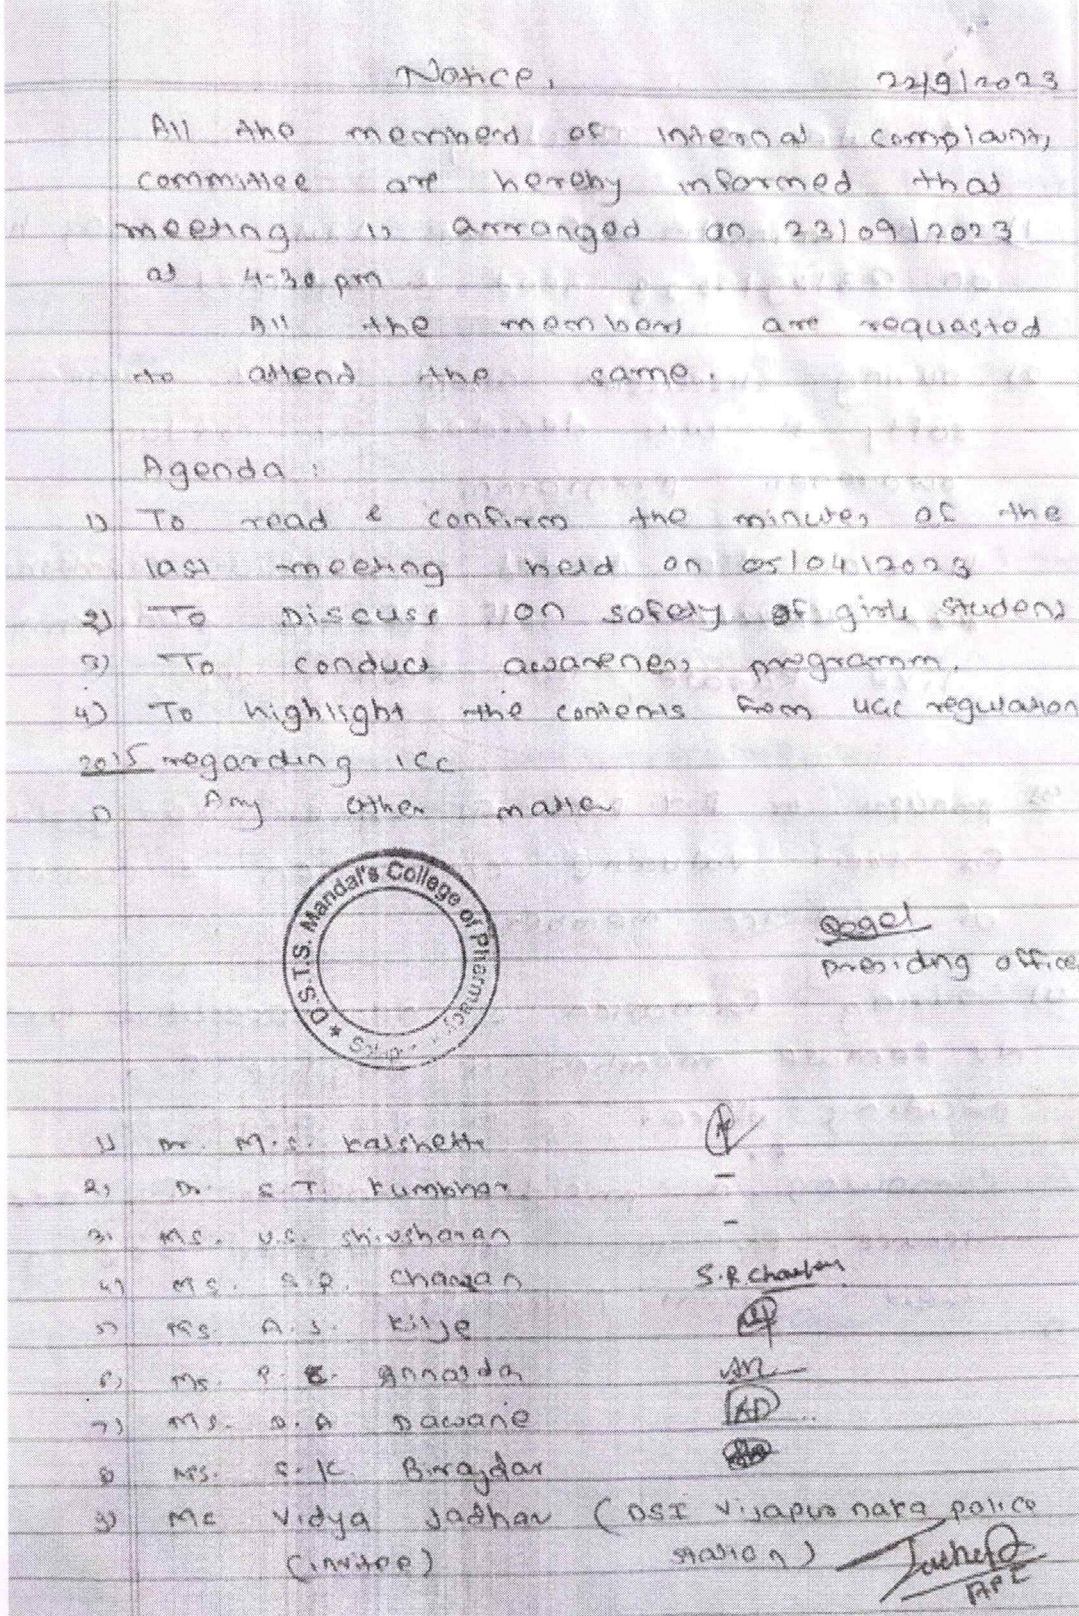 Notice,
22/9/2023
All the members of internal complaint,
committee are hereby informed that
meeting is arranged on 23/09/2023
at 4-30 pm
All the members are requested
to attend the same.
Agenda :
1) To read & confirm the minutes of the
last meeting held on 05/04/2023
2) To Discuss on safety of girls student
3) To conduct awareness programm.
4) To highlight the contents from UGC regulation
2015 regarding ICC
5) Any other matter
* D.S.T.S. Mandal's College of Pharmacy
Presiding officer
1) Dr. M.S. Kalshetti
2) Dr S.T. Kumbhar -
3) Ms. U.S. Shivsharan -
4) Ms. S.R. Chavan S.R.Chavan
5) Ms. A.S. Kilje
6) Ms. P. Annalda
7) Ms. D.A Dawane
8) Ms. S.K. Birajdar
9) Ms Vidya Jadhav (DSI Vijapur naka police
(invitee) station)